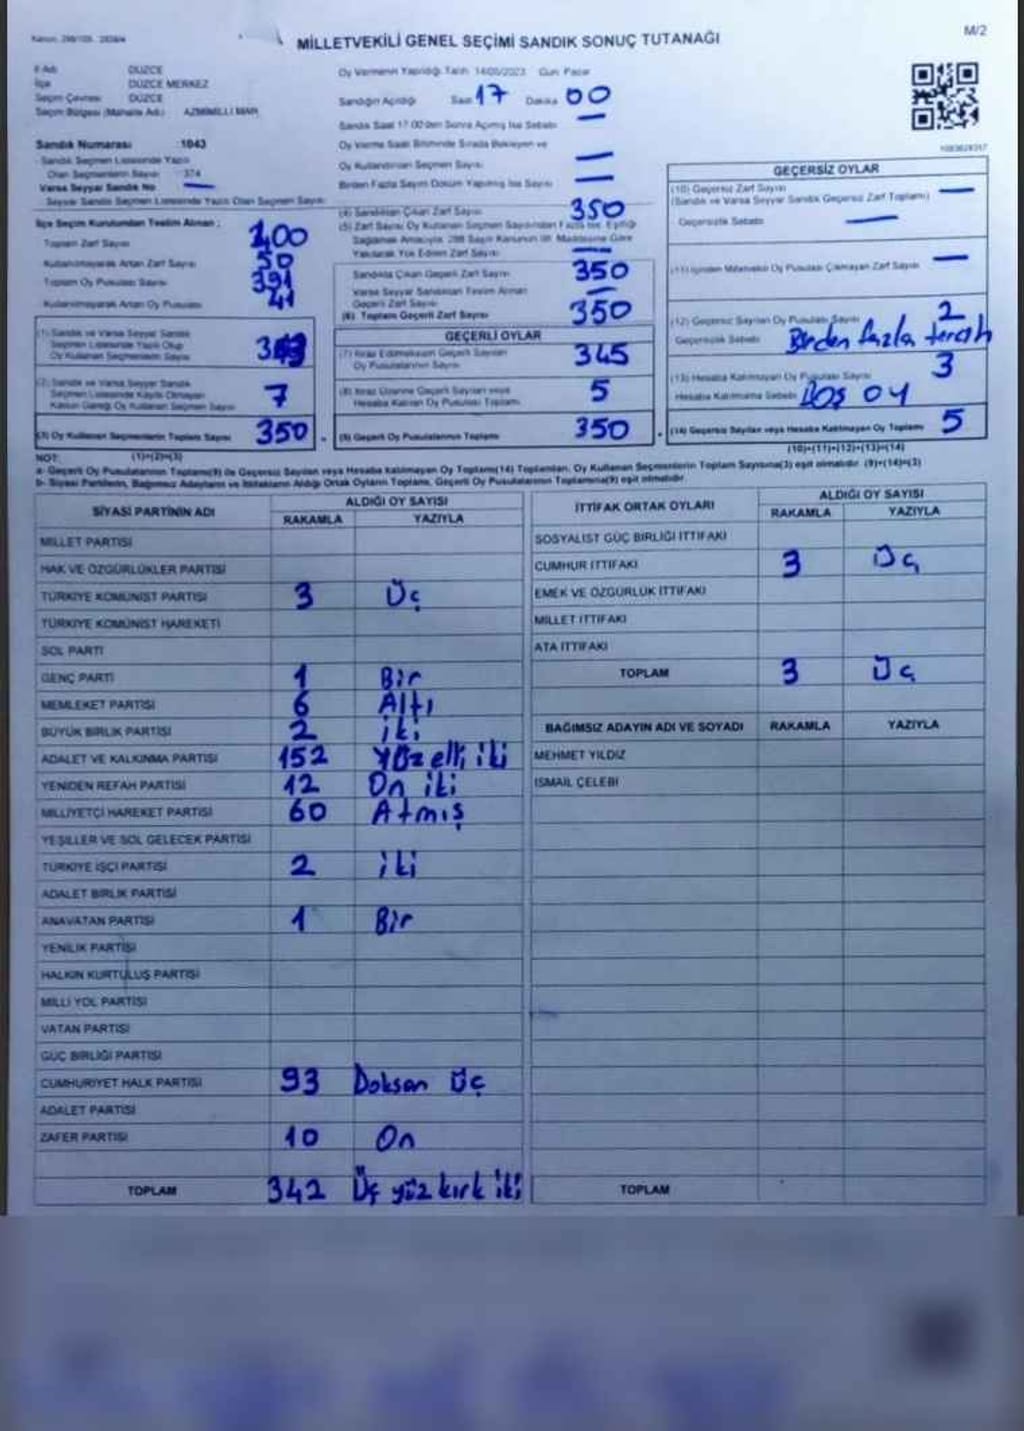 MİLLETVEKİLİ GENEL SEÇİMİ SANDIK SONUÇ TUTANAĞI
M/2
İl Adı DÜZCE
İlçe DÜZCE MERKEZ
Seçim Çevresi DÜZCE
Seçim Bölgesi (Mahalle Adı)
Oy Vermenin Yapıldığı Tarih 14/05/2023 Gün Pazar
Sandığın Açıldığı Saat 17 Dakika 00
Sandık Saat 17.00'den Sonra Açılmış İse Sebebi —
Sandık Numarası 1043
Sandık Seçmen Listesinde Yazılı
Olan Seçmenlerin Sayısı 374
Varsa Seyyar Sandık No —
Seyyar Sandık Seçmen Listesinde Yazılı Olan Seçmen Sayısı
Oy Verme Saati Bitiminde Sırada Bekleyen ve
Oy Kullandırılan Seçmen Sayısı —
Birden Fazla Sayım Döküm Yapılmış İse Sayısı —
İlçe Seçim Kurulundan Teslim Alınan
Toplam Zarf Sayısı 400
Kullanılmayarak Artan Zarf Sayısı 50
Toplam Oy Pusulası Sayısı 391
Kullanılmayarak Artan Oy Pusulası 41
(1) Sandık ve Varsa Seyyar Sandık
Seçmen Listesinde Yazılı Olup
Oy Kullanan Seçmenlerin Sayısı 343
(2) Sandık ve Varsa Seyyar Sandık
Seçmen Listesinde Kayıtlı Olmayan
Kanun Gereği Oy Kullanan Seçmen Sayısı 7
(3) Oy Kullanan Seçmenlerin Toplam Sayısı 350
(1)+(2)=(3)
(4) Sandıktan Çıkan Zarf Sayısı 350
(5) Zarf Sayısı Oy Kullanan Seçmen Sayısından Fazla İse, Eşitliği
Sağlamak Amacıyla 298 Sayılı Kanunun 98. Maddesine Göre
Yakılarak Yok Edilen Zarf Sayısı —
Sandıkta Çıkan Geçerli Zarf Sayısı 350
Varsa Seyyar Sandıktan Teslim Alınan
Geçerli Zarf Sayısı —
(6) Toplam Geçerli Zarf Sayısı 350
GEÇERLİ OYLAR
(7) İtiraz Edilmeksizin Geçerli Sayılan
Oy Pusulalarının Sayısı 345
(8) İtiraz Üzerine Geçerli Sayılan veya
Hesaba Katılan Oy Pusulası Toplamı 5
(9) Geçerli Oy Pusulalarının Toplamı 350
GEÇERSİZ OYLAR
(10) Geçersiz Zarf Sayısı
(Sandık ve Varsa Seyyar Sandık Geçersiz Zarf Toplamı) —
Geçersizlik Sebebi —
(11) İçinden Milletvekili Oy Pusulası Çıkmayan Zarf Sayısı —
(12) Geçersiz Sayılan Oy Pusulası Sayısı 2
Geçersizlik Sebebi Birden fazla tercih
(13) Hesaba Katılmayan Oy Pusulası Sayısı 3
Hesaba Katılmama Sebebi Boş oy
(14) Geçersiz Sayılan veya Hesaba Katılmayan Oy Toplamı 5
(10)+(11)+(12)+(13)=(14)
NOT:
a- Geçerli Oy Pusulalarının Toplamı(9) ile Geçersiz Sayılan veya Hesaba katılmayan Oy Toplamı(14) Toplamları, Oy Kullanan Seçmenlerin Toplam Sayısına(3) eşit olmalıdır. (9)+(14)=(3)
b- Siyasi Partilerin, Bağımsız Adayların ve İttifakların Aldığı Ortak Oyların Toplamı, Geçerli Oy Pusulalarının Toplamına(9) eşit olmalıdır.
SİYASİ PARTİNİN ADI ALDIĞI OY SAYISI
RAKAMLA YAZIYLA
MİLLET PARTİSİ
HAK VE ÖZGÜRLÜKLER PARTİSİ
TÜRKİYE KOMÜNİST PARTİSİ 3 Üç
TÜRKİYE KOMÜNİST HAREKETİ
SOL PARTİ
GENÇ PARTİ 1 Bir
MEMLEKET PARTİSİ 6 Altı
BÜYÜK BİRLİK PARTİSİ 2 iki
ADALET VE KALKINMA PARTİSİ 152 Yüz elli iki
YENİDEN REFAH PARTİSİ 12 On iki
MİLLİYETÇİ HAREKET PARTİSİ 60 Atmış
YEŞİLLER VE SOL GELECEK PARTİSİ
TÜRKİYE İŞÇİ PARTİSİ 2 iki
ADALET BİRLİK PARTİSİ
ANAVATAN PARTİSİ 1 Bir
YENİLİK PARTİSİ
HALKIN KURTULUŞ PARTİSİ
MİLLİ YOL PARTİSİ
VATAN PARTİSİ
GÜÇ BİRLİĞİ PARTİSİ
CUMHURİYET HALK PARTİSİ 93 Doksan Üç
ADALET PARTİSİ
ZAFER PARTİSİ 10 On
TOPLAM 342 Üç yüz kırk iki
İTTİFAK ORTAK OYLARI ALDIĞI OY SAYISI
RAKAMLA YAZIYLA
SOSYALİST GÜÇ BİRLİĞİ İTTİFAKI
CUMHUR İTTİFAKI 3 Üç
EMEK VE ÖZGÜRLÜK İTTİFAKI
MİLLET İTTİFAKI
ATA İTTİFAKI
TOPLAM 3 Üç
BAĞIMSIZ ADAYIN ADI VE SOYADI RAKAMLA YAZIYLA
MEHMET YILDIZ
İSMAİL ÇELEBİ
TOPLAM